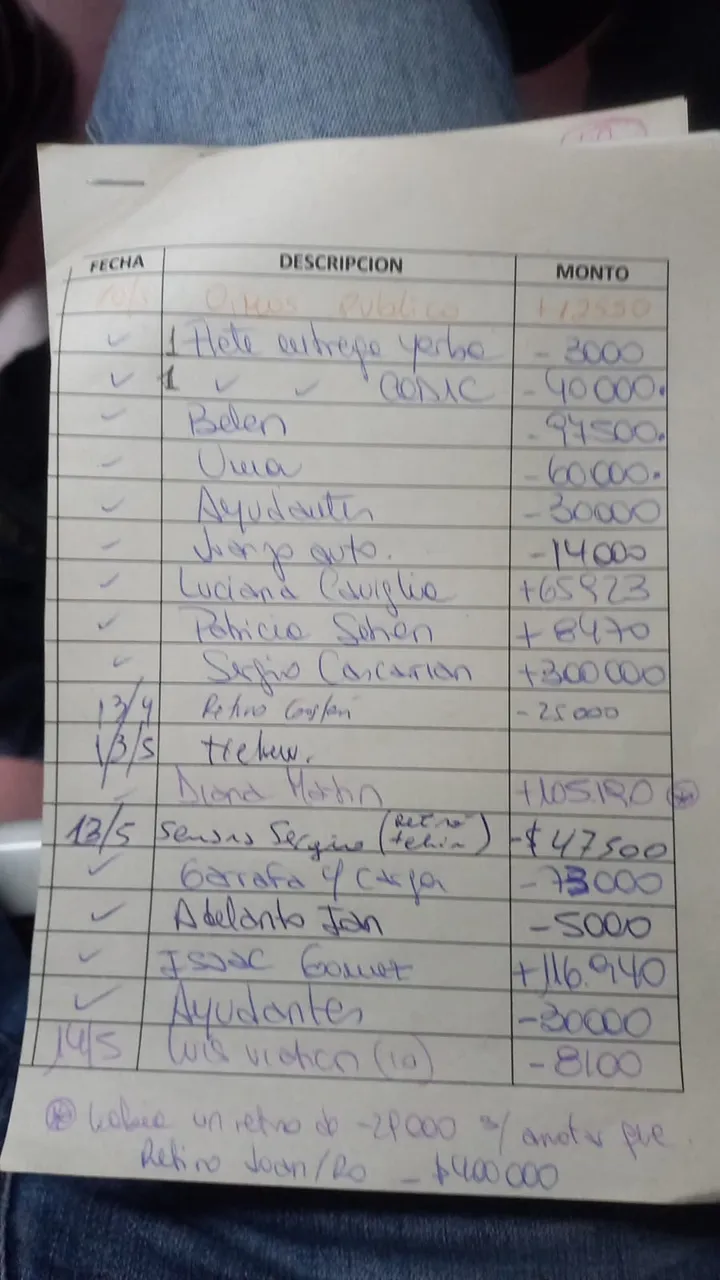 FECHA DESCRIPCION MONTO
10/5 Publico +12550
✓ 1 Flete entrega yerba - 3000
✓ 1 ✓ ✓ CODIC - 40000.
✓ Belen - 97500.
✓ Uma - 60000.
✓ Ayudantes - 30000
✓ auto. - 14000
✓ Luciana Caviglia + 65923
✓ Patricia + 8470
✓ Sergio + 300000
13/4 Retiro - 25000
13/5
Diana Martin +105.190
13/5 Sergio (retiro ) -$ 47500
✓ Garrafa y Carga - 73000
✓ Adelanto Jan - 5000
✓ Isaac Gomez + 116.940
✓ Ayudantes - 30000
14/5 Luis (10) - 8100
un retiro de s/ anotar que
Retiro Joan/Ro - $400000